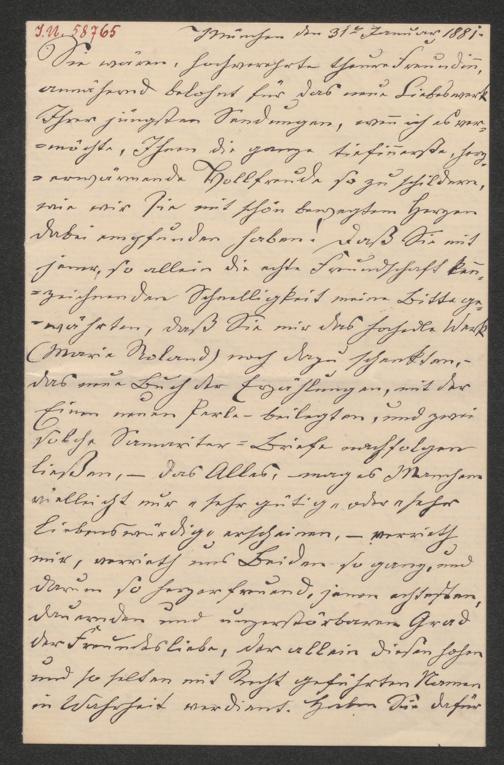 J.N. 58765
München den 31ten Januar, 1881.
Sie wären, hochverehrte theure Freundin,
annähernd belohnt für das neue Liebeswerk
Ihrer jüngsten Sendungen, wenn ich es ver-
=möchte, Ihnen die ganze tiefinnerste, herz-
=erwärmende Vollfreude so zu schildern,
wie wir sie mit schön bewegtem Herzen
dabei empfunden haben! Daß Sie mit
jener, so allein die echte Freundschaft kenn-
=zeichnenden Schnelligkeit meine Bitte ge-
=währten, daß Sie mir das hochedle Werk
(Marie Roland) noch dazu schenkten,-
das neue Buch der Erzählungen, mit der
Einen neuen Perle - beilegten, und zwei
solche Samariter=Briefe nachfolgen
ließen, — das Alles, mag es Manchem
vielleicht nur „sehr gütig„ oder „sehr
liebenswürdig„ erscheinen, — verrieth
mir, verrieth uns Beiden so ganz, und
darum so herzerfreuend, jenen echtesten,
dauernden und unzerstörbaren Grad
der Freundesliebe, der allein diesen hohen
und so selten mit Recht geführten Namen
in Wahrheit verdient. Haben Sie dafür